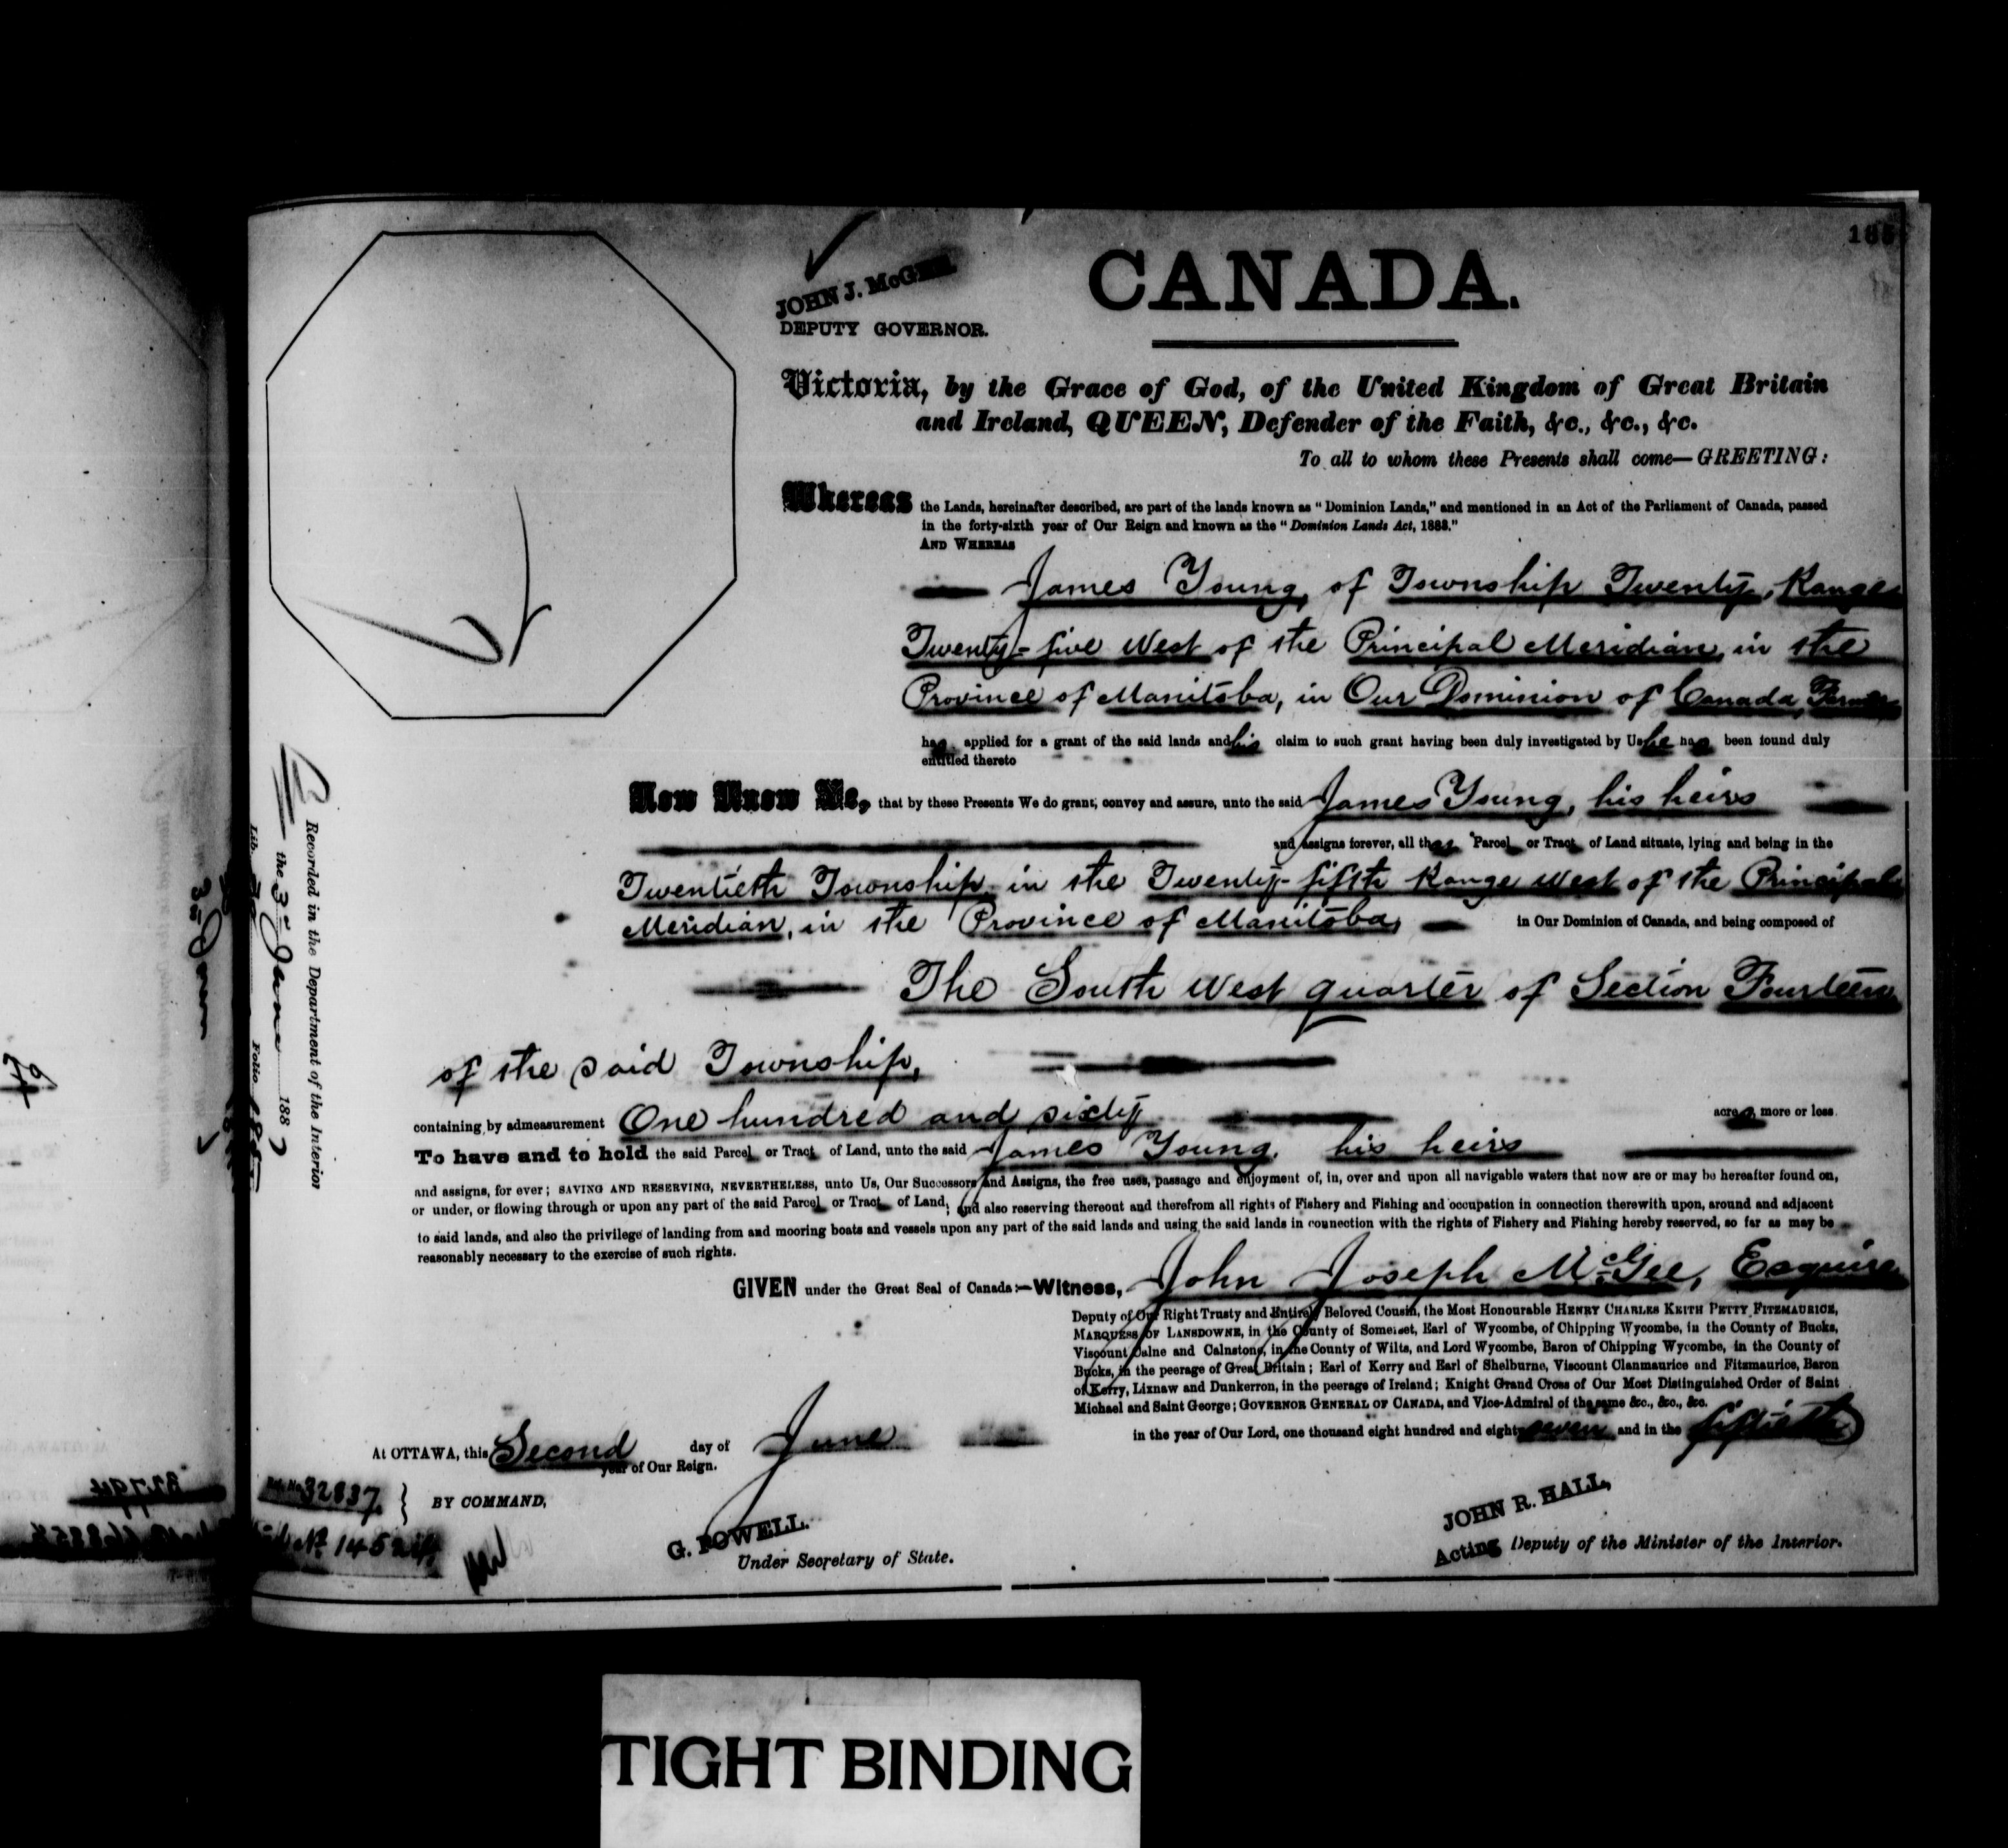 JOHN J. McGEE
DEPUTY GOVERNOR.
CANADA.
Victoria, by the Grace of God, of the United Kingdom of Great Britain
and Ireland, QUEEN, Defender of the Faith, &c., &c., &c.
To all to whom these Presents shall come—GREETING:
Whereas the Lands, hereinafter described, are part of the lands known as "Dominion Lands," and mentioned in an Act of the Parliament of Canada, passed
in the forty-sixth year of Our Reign and known as the "Dominion Lands Act, 1883."
AND WHEREAS
James Young, of Township Twenty, Range
Twenty-five West of the Principal Meridian, in the
Province of Manitoba, in Our Dominion of Canada, Farmer
has applied for a grant of the said lands and his claim to such grant having been duly investigated by Us he has been found duly
entitled thereto
Now Know Ye, that by these Presents We do grant, convey and assure, unto the said James Young, his heirs
and assigns forever, all that Parcel or Tract of Land situate, lying and being in the
Twentieth Township in the Twenty-fifth Range West of the Principal
Meridian, in the Province of Manitoba, in Our Dominion of Canada, and being composed of
The South West quarter of Section Fourteen
of the said Township,
containing by admeasurement One hundred and sixty acres more or less.
To have and to hold the said Parcel or Tract of Land, unto the said James Young, his heirs
and assigns, for ever; SAVING AND RESERVING, NEVERTHELESS, unto Us, Our Successors and Assigns, the free uses, passage and enjoyment of, in, over and upon all navigable waters that now are or may be hereafter found on,
or under, or flowing through or upon any part of the said Parcel or Tract of Land; and also reserving thereout and therefrom all rights of Fishery and Fishing and occupation in connection therewith upon, around and adjacent
to said lands, and also the privilege of landing from and mooring boats and vessels upon any part of the said lands and using the said lands in connection with the rights of Fishery and Fishing hereby reserved, so far as may be
reasonably necessary to the exercise of such rights.
GIVEN under the Great Seal of Canada:—Witness, John Joseph McGee, Esquire
Deputy of Our Right Trusty and Entirely Beloved Cousin, the Most Honourable HENRY CHARLES KEITH PETTY FITZMAURICE,
MARQUESS OF LANSDOWNE, in the County of Somerset, Earl of Wycombe, of Chipping Wycombe, in the County of Bucks,
Viscount Calne and Calnstone, in the County of Wilts, and Lord Wycombe, Baron of Chipping Wycombe, in the County of
Bucks, in the peerage of Great Britain; Earl of Kerry and Earl of Shelburne, Viscount Clanmaurice and Fitzmaurice, Baron
of Kerry, Lixnaw and Dunkerron, in the peerage of Ireland; Knight Grand Cross of Our Most Distinguished Order of Saint
Michael and Saint George; GOVERNOR GENERAL OF CANADA, and Vice-Admiral of the same &c., &c., &c.
At OTTAWA, this Second day of June in the year of Our Lord, one thousand eight hundred and eighty seven and in the fiftieth
year of Our Reign.
32837 } BY COMMAND,
G. POWELL.
Under Secretary of State.
JOHN R. HALL,
Acting Deputy of the Minister of the Interior.
Recorded in the Department of the Interior
the 3rd June 1887
Lib. Folio
TIGHT BINDING